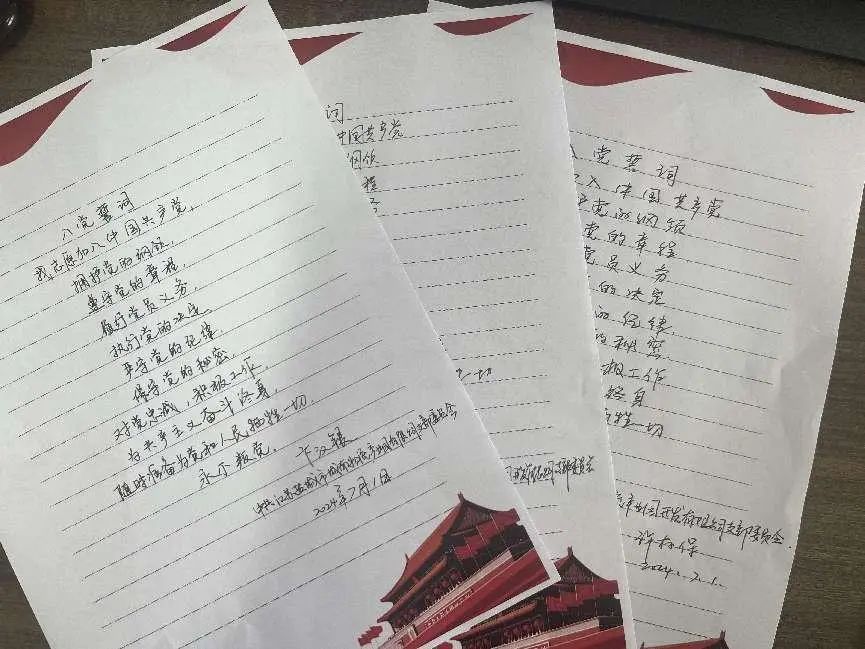 入党誓词
我志愿加入中国共产党,
拥护党的纲领,
遵守党的章程,
履行党员义务,
执行党的决定
严守党的纪律,
保守党的秘密,
对党忠诚,积极工作,
为共产主义奋斗终身,
随时准备为党和人民牺牲一切,
永不叛党。
2024年7月1日
词
中国共产党
纲领
程
一切
入党誓词
加入中国共产党
党的纲领
党的章程
党员义务
的决定
的纪律,
秘密
极工作
终身
牺牲一切
开发有限公司支部委员会
许标保
2024.7.1.